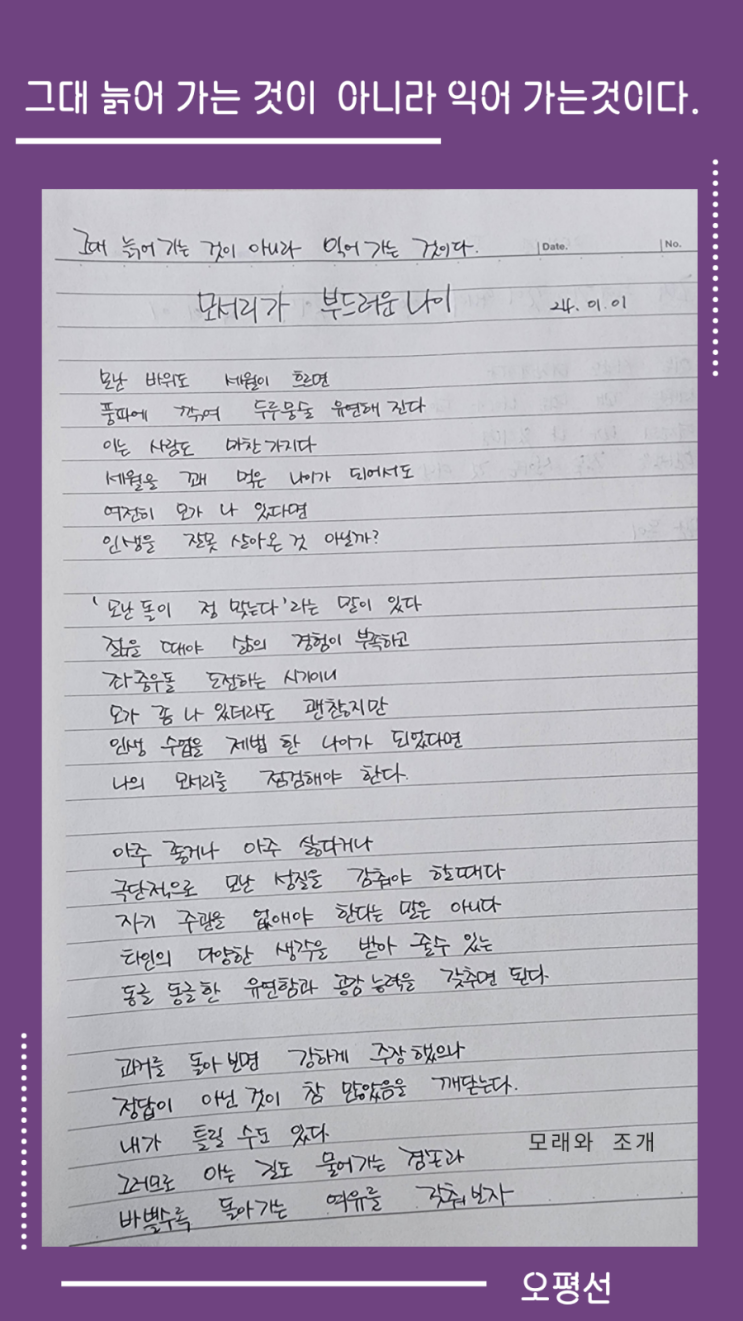 그대 늙어 가는 것이 아니라 익어 가는것이다.
그대 늙어 가는 것이 아니라 익어 가는 것이다.
Date.
No.
모서리가 부드러운 나이
24. 01. 01
모난 바위도 세월이 흐르면
풍파에 깍여 두루뭉술 유연해 진다
이는 사람도 마찬가지다
세월을 꽤 먹은 나이가 되어서도
여전히 모가 나 있다면
인생을 잘못 살아온 것 아닐까?
'모난 돌이 정 맞는다'라는 말이 있다
젊을 때야 삶의 경험이 부족하고
좌충우돌 도전하는 시기이니
모가 좀 나 있더라도 괜찮지만
인생 수업을 제법 한 나이가 되었다면
나의 모서리를 점검해야 한다.
아주 좋거나 아주 싫다거나
극단적으로 모난 성질을 감춰야 할때다
자기 주관을 없애야 한다는 말은 아니다
타인의 다양한 생각을 받아 줄수 있는
둥글 둥글한 유연함과 공감 능력을 갖추면 된다
과거를 돌아 보면 강하게 주장 했으나
정답이 아닌 것이 참 많았음을 깨닫는다.
내가 틀릴 수도 있다
그러므로 아는 길도 물어가는 겸손과
바쁠수록 돌아가는 여유를 갖춰 보자
모래와 조개
오평선